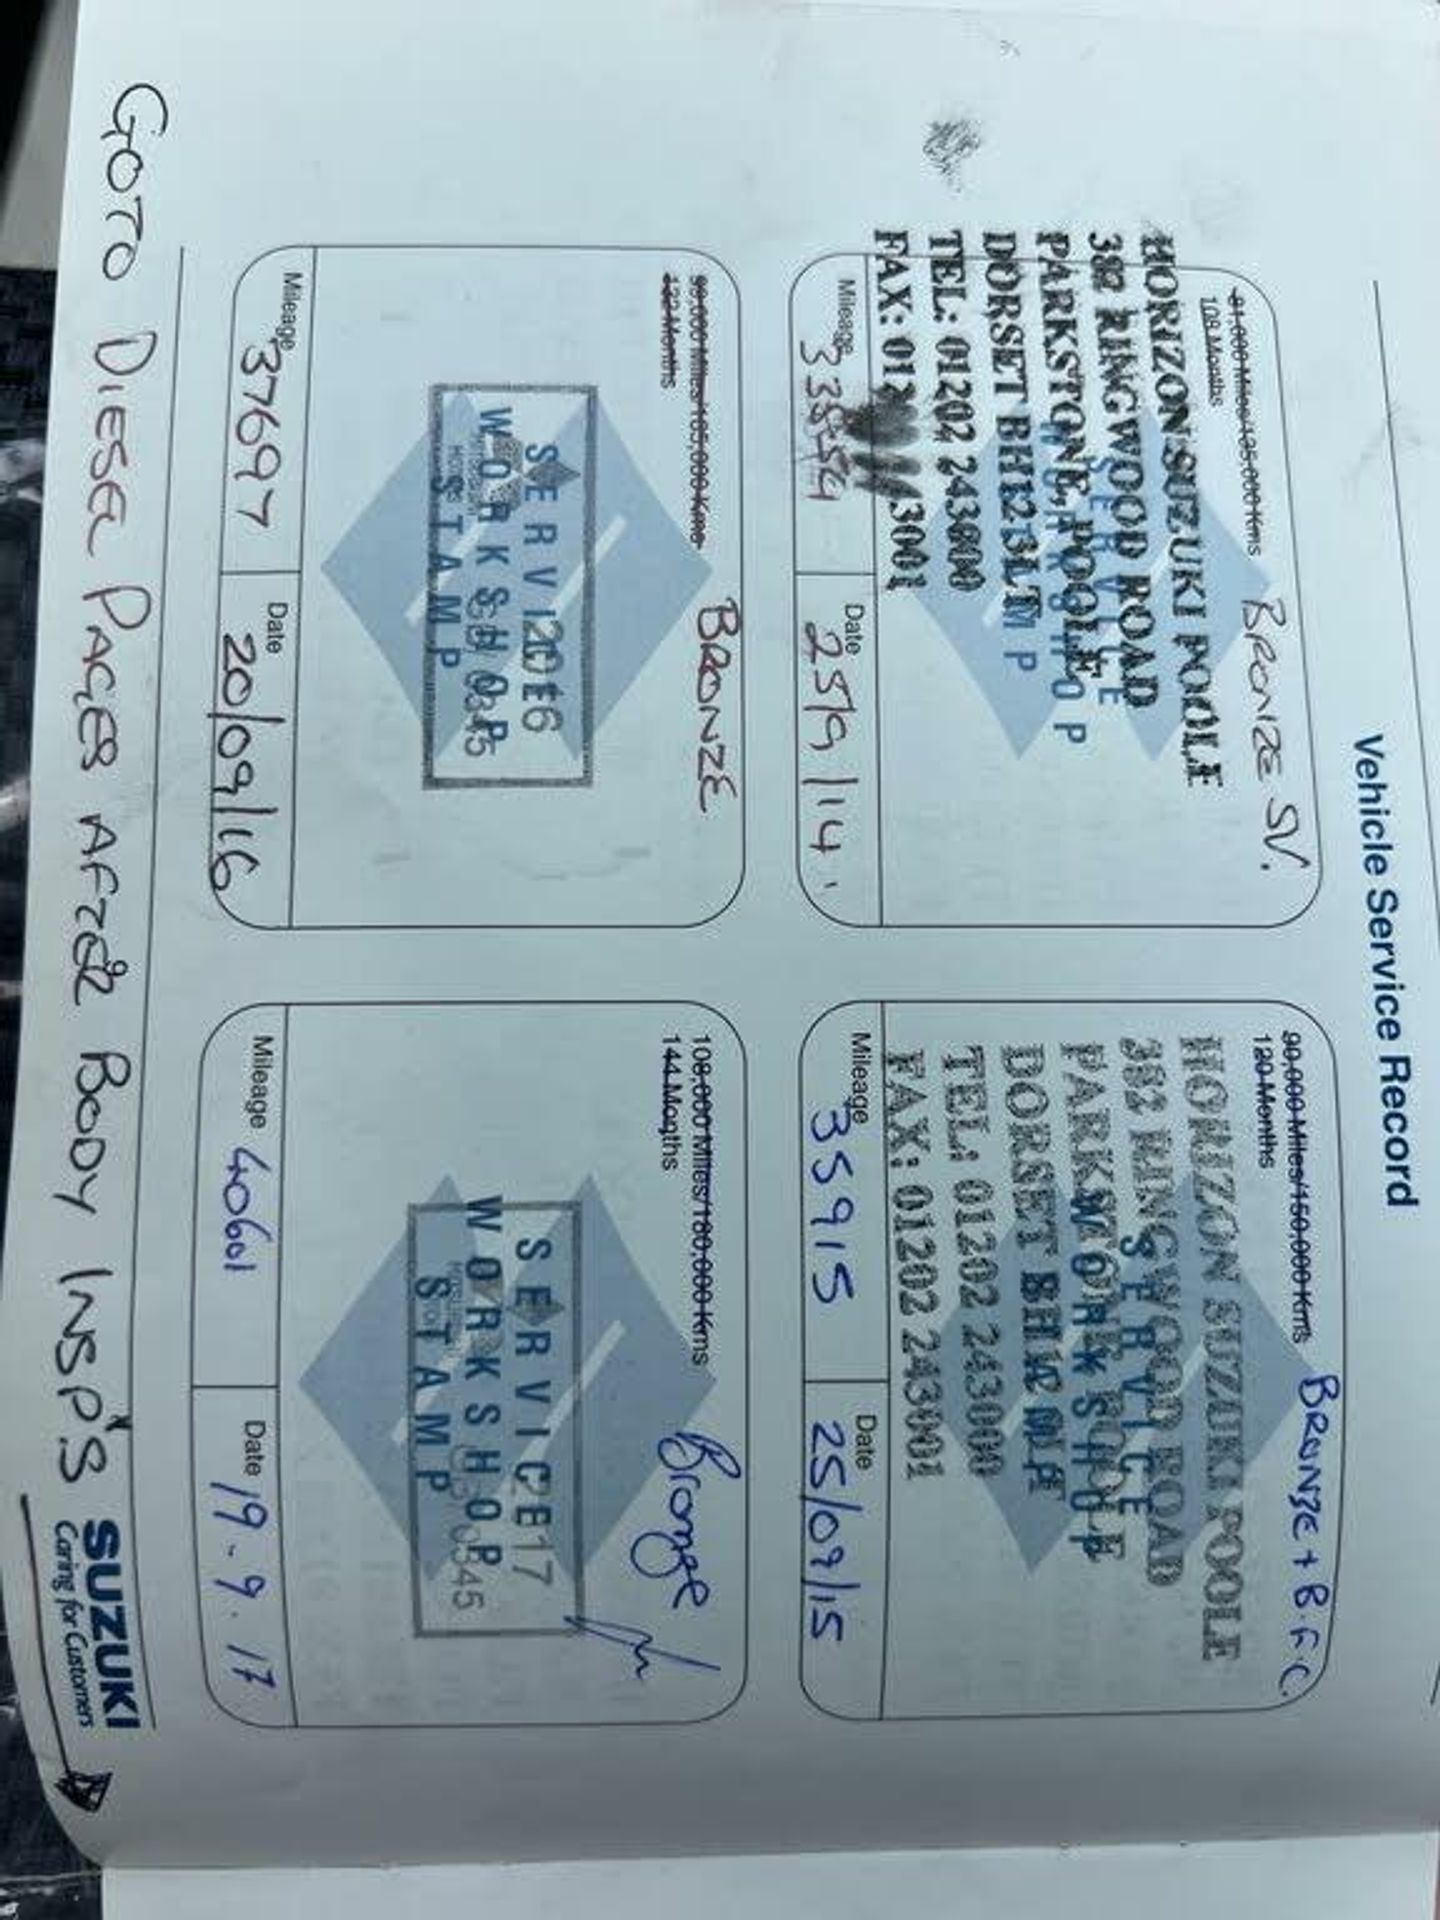 Vehicle Service Record
81,000 Miles/135,000 Kms
108 Months
BRONZE SV.
HORIZON SUZUKI POOLE
382 RINGWOOD ROAD
PARKSTONE, POOLE
DORSET BH12 3LT
TEL: 01202 243000
SERVICE
WORKSHOP
STAMP
Mileage
Date
25/9/14
90,000 Miles/150,000 Kms
120 Months
BRONZE + B.F.C.
HORIZON SUZUKI POOLE
382 RINGWOOD ROAD
PARKSTONE POOLE
DORSET
TEL: 01202 243000
FAX: 01202 243001
SERVICE
WORKSHOP
STAMP
Mileage 35915
Date 25/09/15
99,000 Miles/165,000 Kms
132 Months
BRONZE
SERVICE
WORKSHOP
STAMP
Mileage 37697
Date 20/09/16
108,000 Miles/180,000 Kms
144 Months
Bronze
SERVICE
WORKSHOP
STAMP
Mileage 40601
Date 19.9.17
GOTO DIESEL PAGES AFTER BODY INSP'S
SUZUKI
Caring for Customers